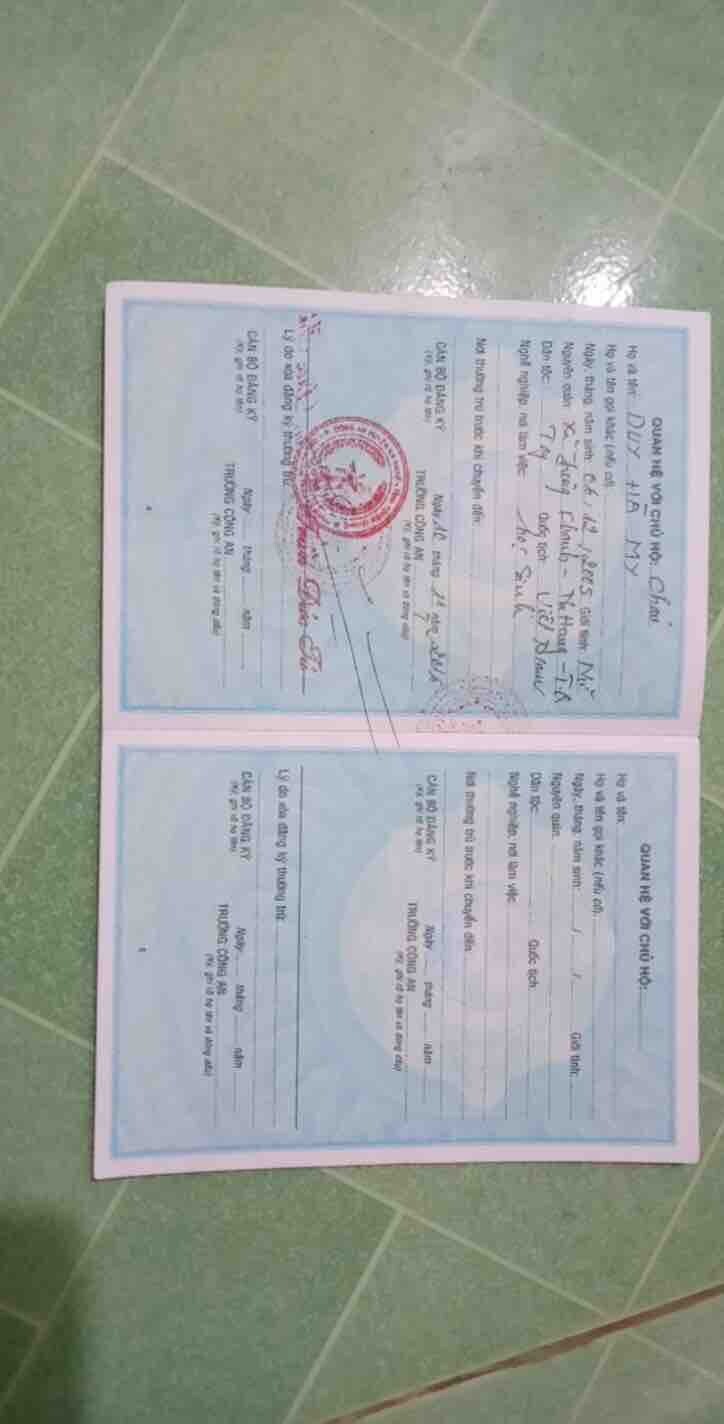 QUAN HỆ VỚI CHỦ HỘ: Cháu
Họ và tên: DUY HÀ MY
Họ và tên gọi khác (nếu có):
Ngày, tháng, năm sinh: 06/12/2005 Giới tính: Nữ
Nguyên quán: Xã Thanh -
Dân tộc: Tày Quốc tịch: Việt Nam
Nghề nghiệp, nơi làm việc: học sinh
Nơi thường trú trước khi chuyển đến:
Ngày 12 tháng 12 năm
CÁN BỘ ĐĂNG KÝ TRƯỞNG CÔNG AN
(Ký, ghi rõ họ tên) (Ký, ghi rõ họ tên và đóng dấu)
Lý do xóa đăng ký thường trú:
Ngày tháng năm
CÁN BỘ ĐĂNG KÝ TRƯỞNG CÔNG AN
(Ký, ghi rõ họ tên) (Ký, ghi rõ họ tên và đóng dấu)
QUAN HỆ VỚI CHỦ HỘ:
Họ và tên:
Họ và tên gọi khác (nếu có):
Ngày, tháng, năm sinh: / / Giới tính:
Nguyên quán:
Dân tộc: Quốc tịch:
Nghề nghiệp, nơi làm việc:
Nơi thường trú trước khi chuyển đến:
Ngày tháng năm
CÁN BỘ ĐĂNG KÝ TRƯỞNG CÔNG AN
(Ký, ghi rõ họ tên) (Ký, ghi rõ họ tên và đóng dấu)
Lý do xóa đăng ký thường trú:
Ngày tháng năm
CÁN BỘ ĐĂNG KÝ TRƯỞNG CÔNG AN
(Ký, ghi rõ họ tên) (Ký, ghi rõ họ tên và đóng dấu)